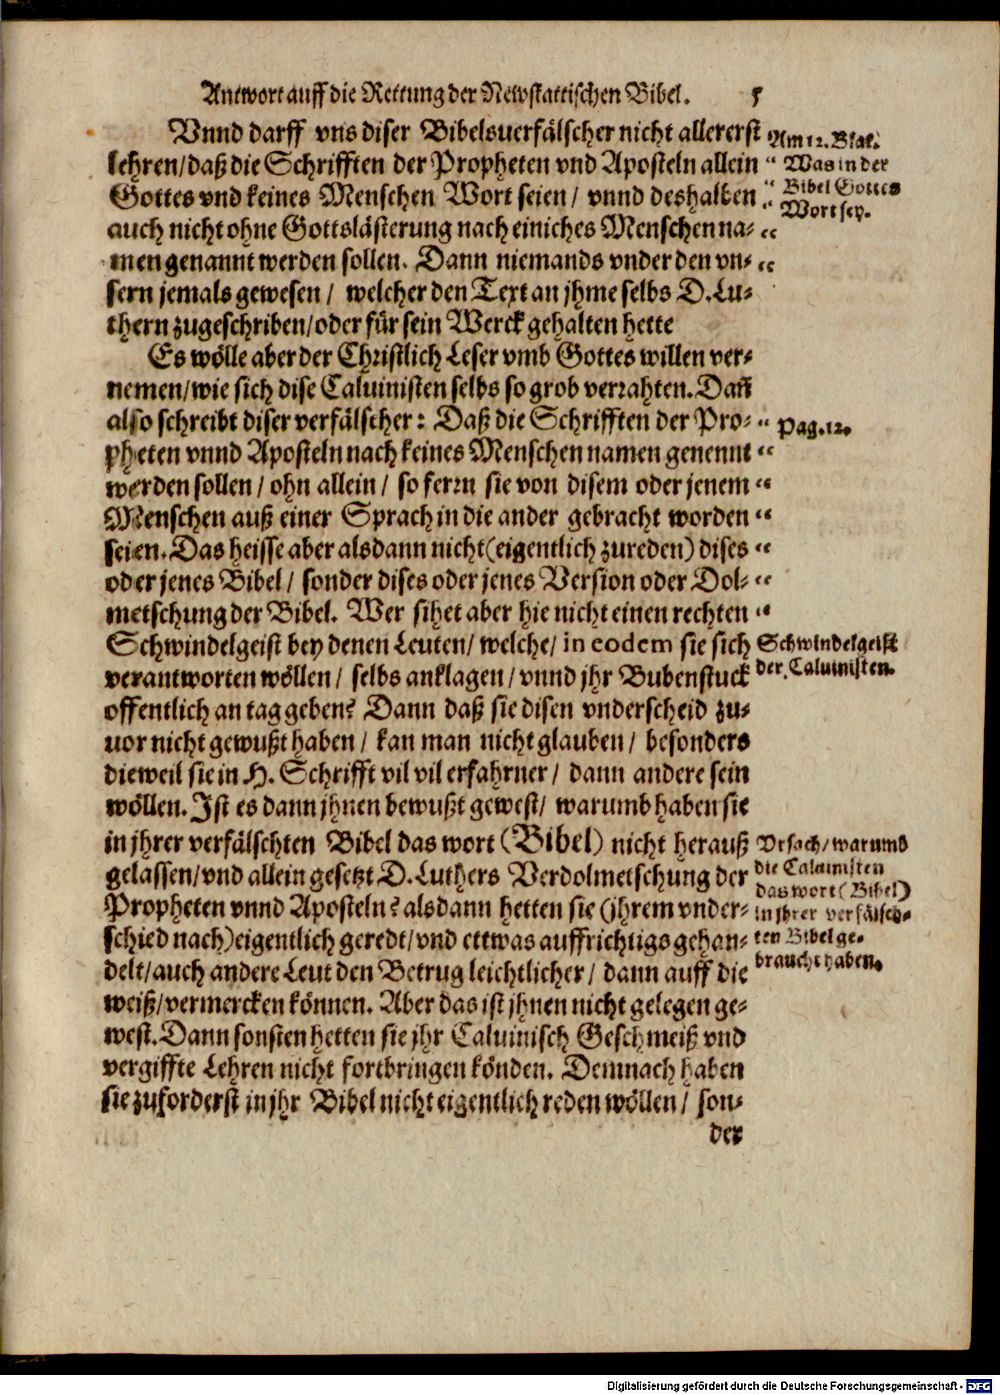 Antwort auff die Rettung der Newstattischen Bibel. 5
Vnnd darff vns diser Bibelsverfälscher nicht allererst
lehren/daß die Schrifften der Propheten vnd Aposteln allein
Gottes vnd keines Menschen Wort seien/ vnnd deshalben
auch nicht ohne Gottslästerung nach einiches Menschen na-
men genannt werden sollen. Dann niemands vnder den vn-
sern jemals gewesen/ welcher den Text an jhme selbs D. Lu-
thern zugeschriben/oder für sein Werck gehalten hette
Am 12. Blat.
Was in der
Bibel Gottes
Wort sey.
Es wölle aber der Christlich Leser vmb Gottes willen ver-
nemen/wie sich dise Caluinisten selbs so grob verrahten. Dañ
also schreibt diser verfälscher: Daß die Schrifften der Pro-
pheten vnnd Aposteln nach keines Menschen namen genennt
werden sollen/ ohn allein/ so ferrn sie von disem oder jenem
Menschen auß einer Sprach in die ander gebracht worden
seien. Das heisse aber alsdann nicht (eigentlich zureden) dises
oder jenes Bibel/ sonder dises oder jenes Version oder Dol-
metschung der Bibel. Wer sihet aber hie nicht einen rechten
Schwindelgeist bey denen Leuten/ welche/ in eodem sie sich
verantworten wöllen/ selbs anklagen/ vnnd jhr Bubenstuck
offentlich an tag geben? Dann daß sie disen vnderscheid zu-
uor nicht gewußt haben/ kan man nicht glauben/ besonders
dieweil sie in H. Schrifft vil vil erfahrner/ dann andere sein
wöllen. Ist es dann jhnen bewußt gewest/ warumb haben sie
in jhrer verfälschten Bibel das wort (Bibel) nicht herauß
gelassen/vnd allein gesetzt D. Luthers Verdolmetschung der
Propheten vnnd Aposteln? alsdann hetten sie (jhrem vnder-
schied nach) eigentlich geredt/vnd ettwas auffrichtigs gehan-
delt/auch andere Leut den Betrug leichtlicher/ dann auff die
weiß/vermercken können. Aber das ist jhnen nicht gelegen ge-
west. Dann sonsten hetten sie jhr Caluinisch Geschmeiß vnd
vergiffte Lehren nicht fortbringen könden. Demnach haben
sie zuforderst in jhr Bibel nicht eigentlich reden wöllen/ son-
der
Pag. 12.
Schwindelgeist
der Caluinisten.
Vrsach/warumb
die Caluinisten
das wort (Bibel)
in jhrer verfälsch-
ten Bibel ge-
braucht haben.
Digitalisierung gefördert durch die Deutsche Forschungsgemeinschaft - DFG